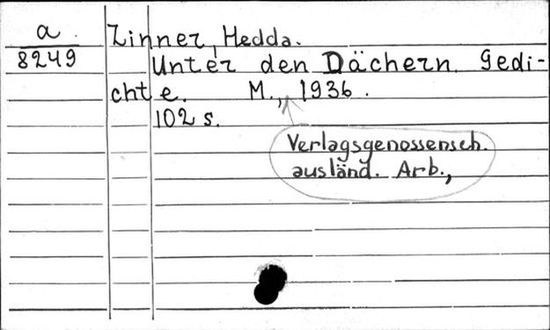 a.
8249
Zinner, Hedda.
Unter den Dächern. Gedi-
chte. M., 1936.
102 s.
Verlagsgenossensch.
ausländ. Arb.,